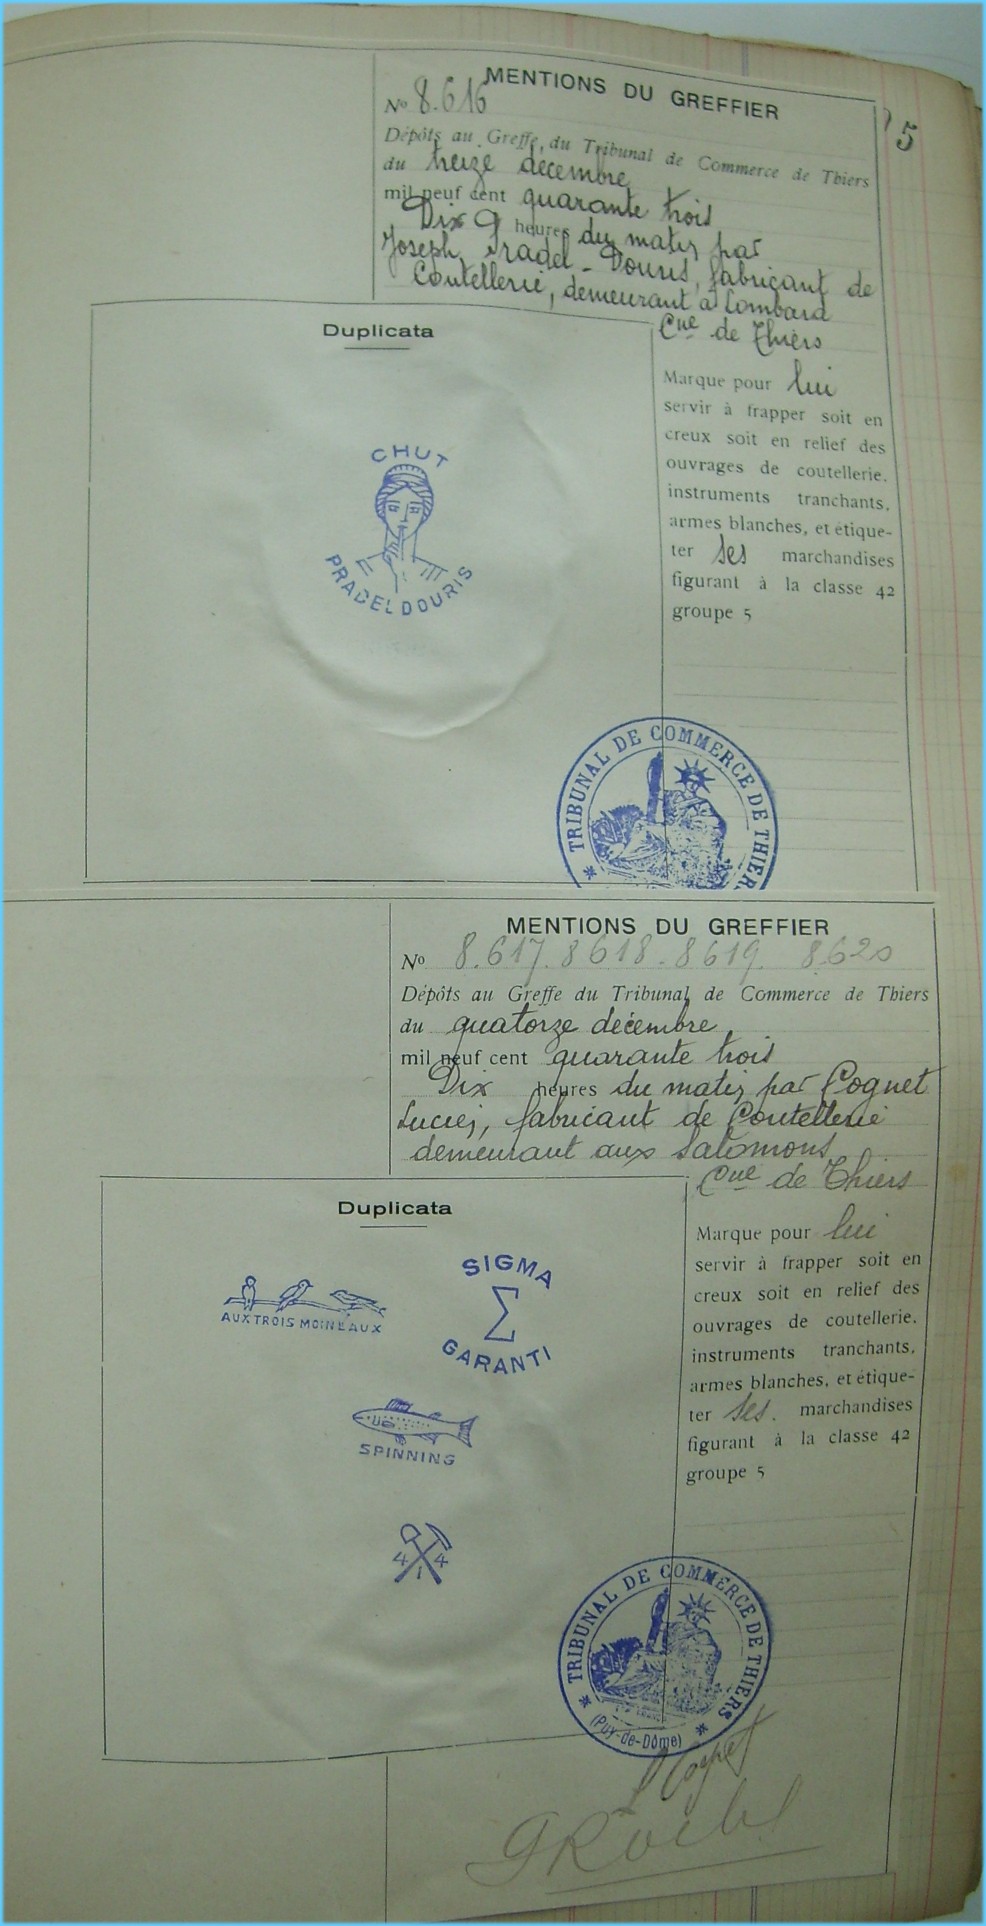 MENTIONS DU GREFFIER
No 8.616
5
Dépôts au Greffe, du Tribunal de Commerce de Thiers
du treize décembre
mil neuf cent quarante trois
Dix heures du matin par
Joseph Pradel-Douris, fabricant de
Coutellerie, demeurant à Lombard
Cne de Thiers
Duplicata
Marque pour lui
servir à frapper soit en
creux soit en relief des
ouvrages de coutellerie,
instruments tranchants,
armes blanches, et étique-
ter ses marchandises
figurant à la classe 42
groupe 5
CHUT
PRADEL DOURIS
TRIBUNAL DE COMMERCE DE THIER
MENTIONS DU GREFFIER
No 8.617. 8618. 8619. 8620
Dépôts au Greffe du Tribunal de Commerce de Thiers
du quatorze décembre
mil neuf cent quarante trois
Dix heures du matin par Cognet
Lucien, fabricant de Coutellerie
demeurant aux Salomons
Cne de Thiers
Duplicata
Marque pour lui
servir à frapper soit en
creux soit en relief des
ouvrages de coutellerie,
instruments tranchants,
armes blanches, et étique-
ter ses marchandises
figurant à la classe 42
groupe 5
AUX TROIS MOINEAUX
SIGMA
Σ
GARANTI
SPINNING
4 1 4
TRIBUNAL DE COMMERCE DE THIERS
(Puy-de-Dôme)
L Cognet